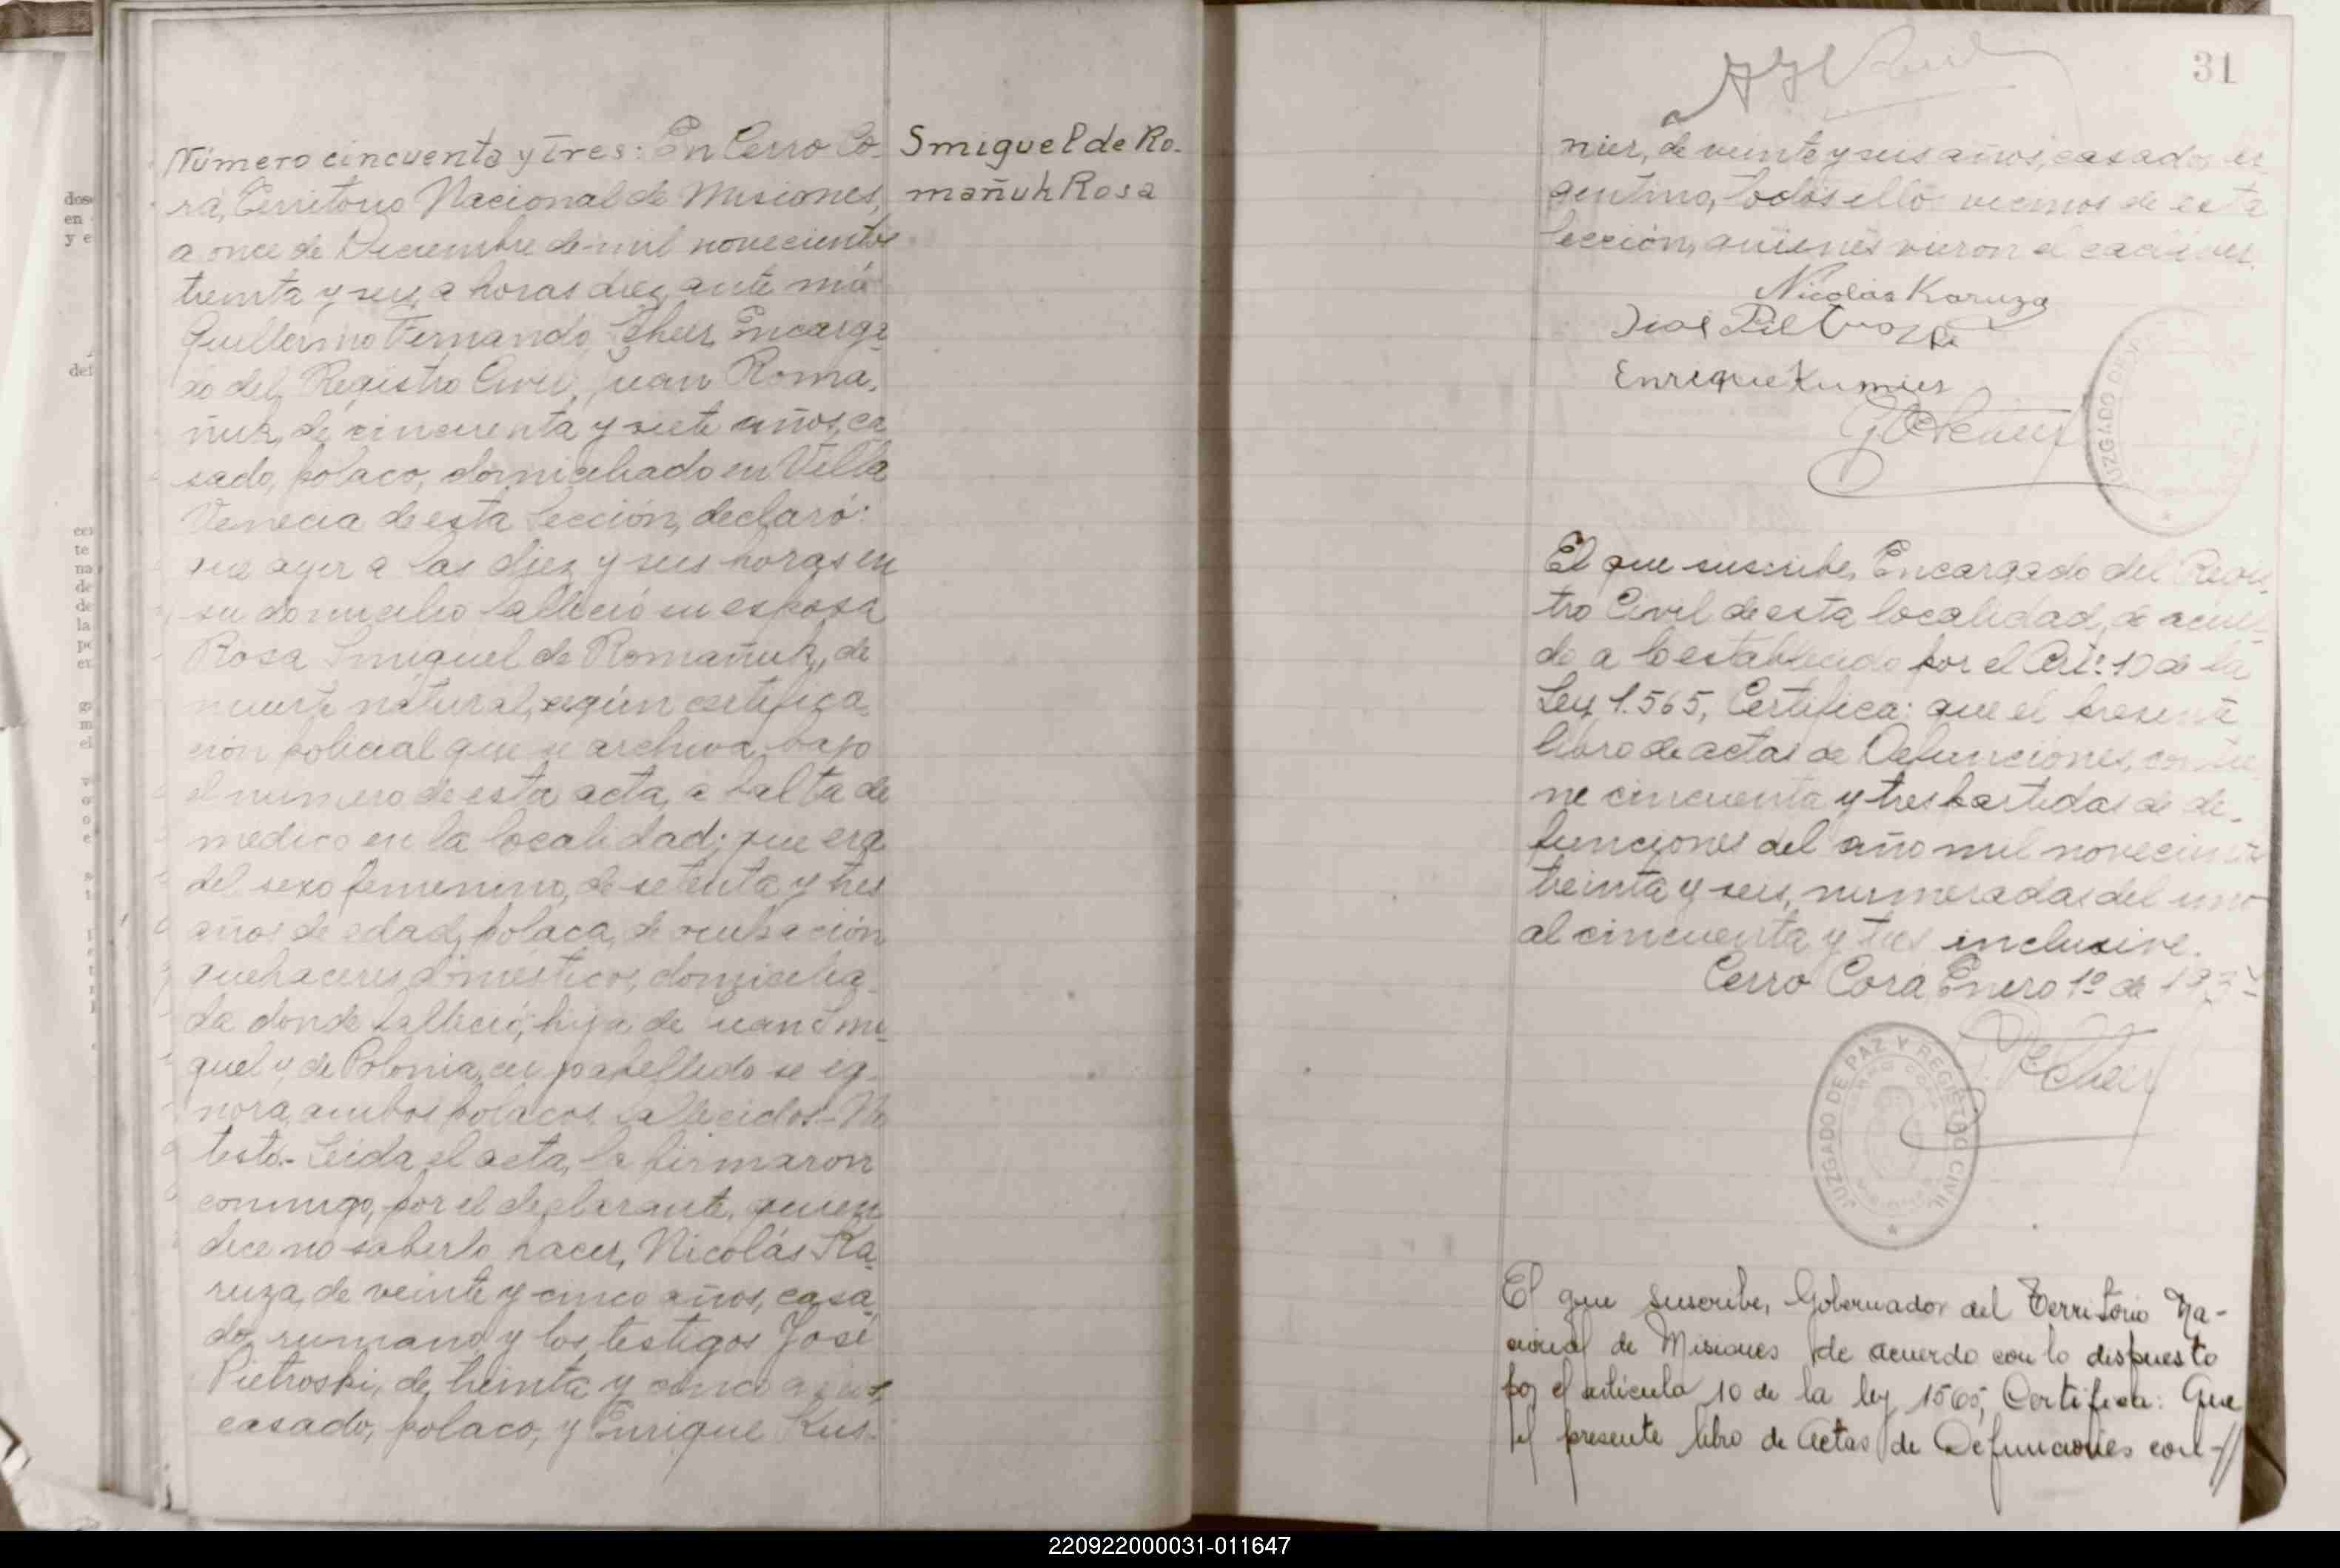 Número cincuenta y tres: En Cerro Co-
rá, Territorio Nacional de Misiones,
a once de Diciembre de mil novecientos
treinta y seis, a horas diez, ante mi
Guillermo Fernando Scheer, Encarga-
do del Registro Civil, Juan Roma-
ñuk, de cincuenta y siete años, ca
sado, polaco, domiciliado en Villa
Venecia de esta Sección, declaró:
que ayer a las diez y seis horas en
su domicilio falleció su esposa
Rosa Smiguel de Romañuk, de
muerte natural, según certifica-
ción policial que se archiva bajo
el número de esta acta, a falta de
médico en la localidad; que era
del sexo femenino, de setenta y tres
años de edad, polaca, de ocupación
quehaceres domésticos, domicilia-
da donde falleció; hija de Juan Smi-
guel y de Polonia, cuyo apellido se ig-
nora, ambos polacos, fallecidos.- No
testó.- Leida el acta, la firmaron
conmigo, por el declarante, quien
dice no saberlo hacer, Nicolás Ka-
ruza, de veinte y cinco años, casa-
do, rumano y los testigos José
Pietroski, de treinta y cinco años,
casado, polaco, y Enrique Kus-
Smiguel de Ro-
mañuk Rosa
31
nier, de veinte y seis años, casado, ar-
gentino, todos ellos vecinos de esta
Sección, quienes vieron el cadáver.
Nicolás Karuza
José
Enrique
JUZGADO DE
El que suscribe, Encargado del Regis-
tro Civil de esta localidad, de acuer-
do a lo establecido por el Art.º 10 de la
Ley 1.565, Certifica: que el presente
libro de actas de Defunciones, contie-
ne cincuenta y tres partidas de de-
funciones del año mil novecientos
treinta y seis, numeradas del uno
al cincuenta y tres inclusive.
Cerro Corá, Enero 1º de 1937
JUZGADO DE PAZ Y REGISTRO CIVIL
CERRO CORA
El que suscribe, Gobernador del Territorio Na-
cional de Misiones de acuerdo con lo dispuesto
por el artículo 10 de la ley 1565, Certifica: Que
el presente libro de Actas de Defunciones con-//
220922000031-011647